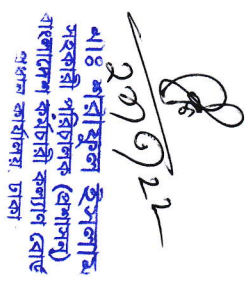 ২৭/৩/২২
মোঃ শরীফুল ইসলাম
সহকারী পরিচালক (প্রশাসন)
বাংলাদেশ কর্মচারী কল্যাণ বোর্ড
প্রধান কার্যালয়, ঢাকা